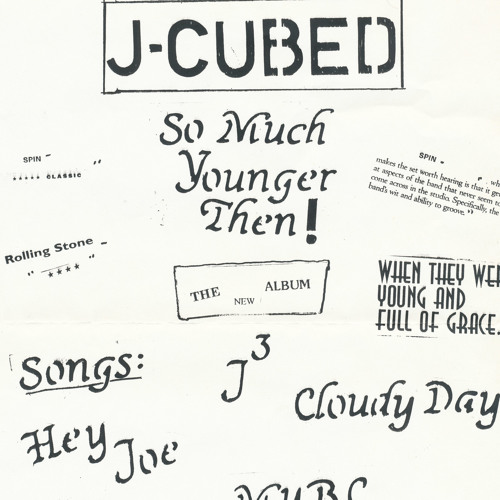 J-CUBED
So Much
Younger
Then!
SPIN -
★★★★★ CLASSIC "
SPIN - "
makes the set worth hearing is that it
at aspects of the band that never seem to
come across in the studio. Specifically, the
band's wit and ability to groove."
Rolling Stone -
" ★★★★ "
THE NEW ALBUM
WHEN THEY WER
YOUNG AND
FULL OF GRACE.
Songs:
J³
Cloudy Day
Hey Joe